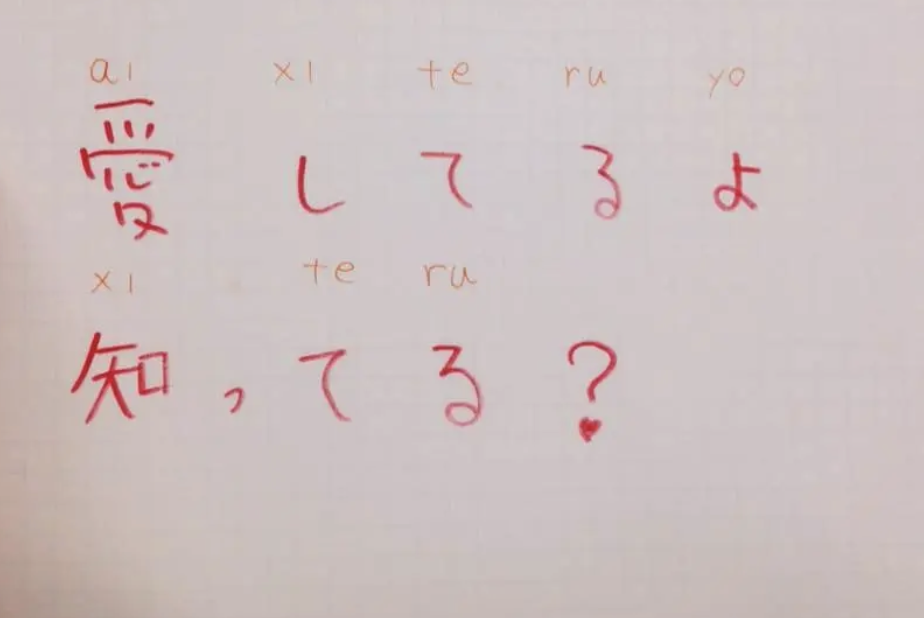 ai xi te ru yo
愛してるよ
xi te ru
知ってる?